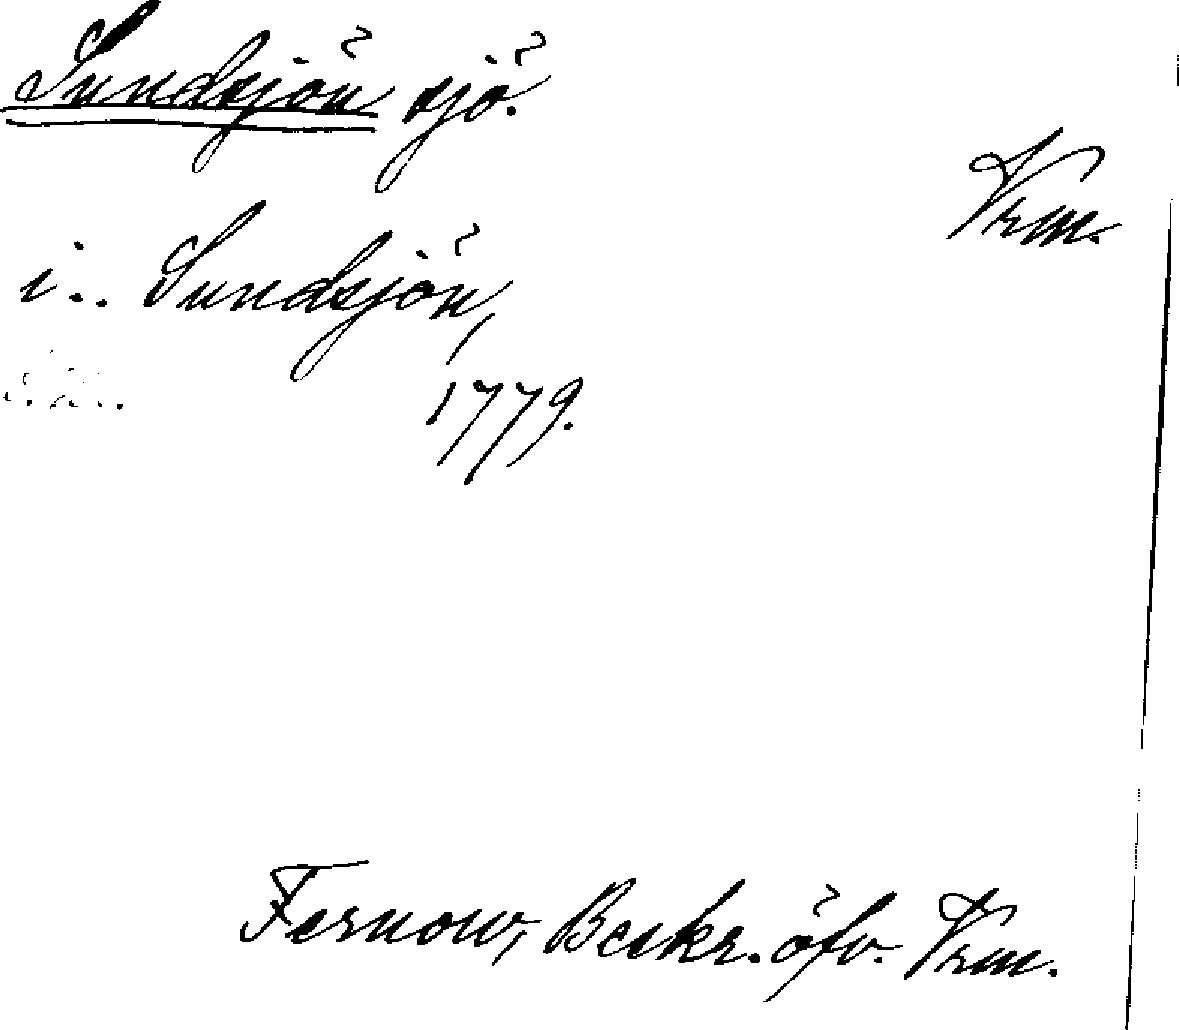 Sundsjön sjö.
Vrm.
i.. Sundsjön,
1779.
Fernow, Beskr. öfv. Vrm.